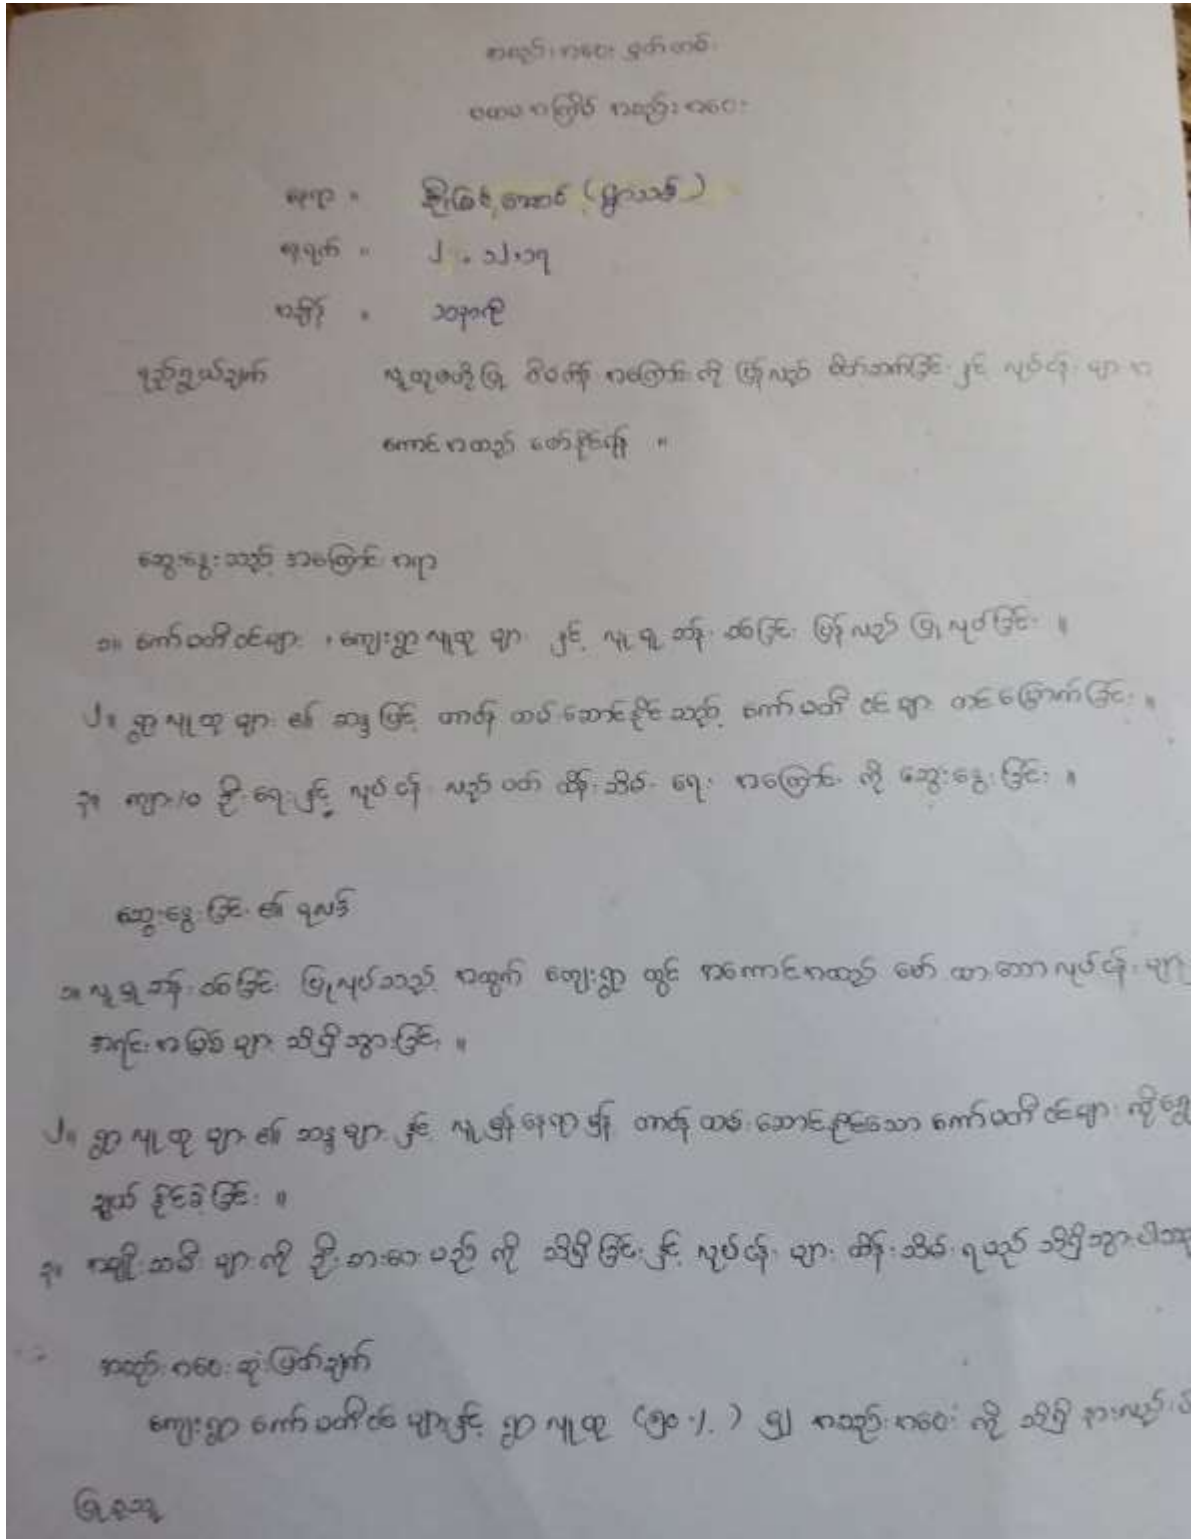 အစည်းအဝေး မှတ်တမ်း
ပထမ အကြိမ် အစည်းအဝေး
နေရာ ။ ဦးမြင့်အောင် (ရွာသစ်)
နေ့ရက် ။ ၂ . ၁၂.၁၇
အချိန် ။
ရည်ရွယ်ချက် လူထုဗဟိုပြု စီမံကိန်း အကြောင်းကို ပြန်လည် မိတ်ဆက်ခြင်း နှင့် လုပ်ငန်းများ အ
ကောင်အထည် ဖော်နိုင်ရန် ။
ဆွေးနွေးသည့် အကြောင်းအရာ
၁။ ကော်မတီဝင်များ ၊ ကျေးရွာလူထုများ နှင့် လူမှုဆန်းစစ်ခြင်း ပြန်လည် ပြုလုပ်ခြင်း ။
၂။ ရွာလူထုများ ၏ ဆန္ဒဖြင့် တာဝန် ထမ်းဆောင်နိုင်သည့် ကော်မတီဝင်များ တင်မြှောက်ခြင်း ။
၃။ ကျား/မ ဦးရေနှင့် လုပ်ငန်း လည်ပတ် ထိန်းသိမ်းရေး အကြောင်း ကို ဆွေးနွေးခြင်း ။
ဆွေးနွေးခြင်း ၏ ရလဒ်
၁။ လူမှုဆန်းစစ်ခြင်း ပြုလုပ်သည့် အတွက် ကျေးရွာ တွင် အကောင်အထည် ဖော် ထားသော လုပ်ငန်းများ
အရင်းအမြစ်များ သိရှိသွားခြင်း ။
၂။ ရွာလူထုများ ၏ ဆန္ဒများ နှင့် လူမှန်နေရာမှန် တာဝန် ထမ်းဆောင်နိုင်သော ကော်မတီဝင်များ ကိုရွေး
ချယ် နိုင်ခဲ့ခြင်း ။
၃။ အမျိုးသမီးများ ကို ဦးစားပေးမည် ကို သိရှိခြင်း နှင့် လုပ်ငန်းများ ထိန်းသိမ်းရမည် သိရှိသွားပါသည်
အစည်းအဝေး ဆုံးဖြတ်ချက်
ကျေးရွာ ကော်မတီဝင်များနှင့် ရွာလူထု (၅၀ %) မျှ အစည်းအဝေး ကို သိရှိ နားလည်
ပြုစုသူ